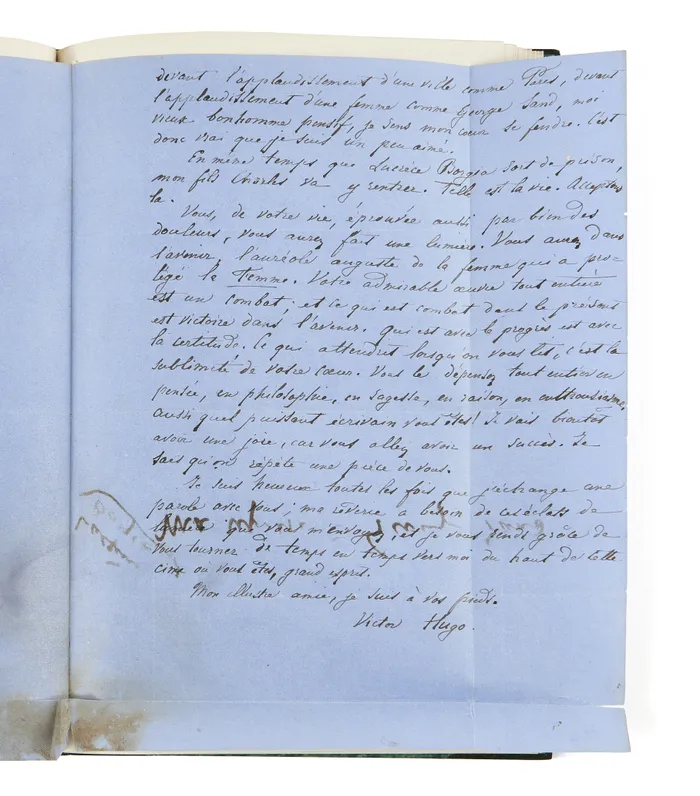 devant l'applaudissement d'une ville comme Paris, devant
l'applaudissement d'une femme comme George Sand, moi
vieux bonhomme pensif, je sens mon cœur se fendre. C'est
donc vrai que je suis un peu aimé.
En même temps que Lucrèce Borgia sort de prison,
mon fils Charles va y rentrer. Telle est la vie. Acceptons
la.
Vous, de votre vie, éprouvée aussi par bien des
douleurs, vous aurez fait une lumière. Vous aurez dans
l'avenir, l'auréole auguste de la femme qui a pro-
tégé la Femme. Votre admirable œuvre tout entière
est un combat, et ce qui est combat dans le présent
est victoire dans l'avenir. Qui est avec le progrès est avec
la certitude. Ce qui attendrit lorsqu'on vous lit, c'est la
sublimité de votre cœur. Vous le dépensez tout entier en
pensée, en philosophie, en sagesse, en raison, en enthousiasme,
aussi quel puissant écrivain vous êtes! Je vais bientôt
avoir une joie, car vous allez avoir un succès. Je
sais qu'on répète une pièce de vous.
Je suis heureux toutes les fois que j'échange une
parole avec vous; ma rêverie a besoin de ces éclats de
lumière que vous m'envoyez, et je vous rends grâce de
vous tourner de temps en temps vers moi du haut de cette
cime où vous êtes, grand esprit.
Mon illustre amie, je suis à vos pieds.
Victor Hugo.